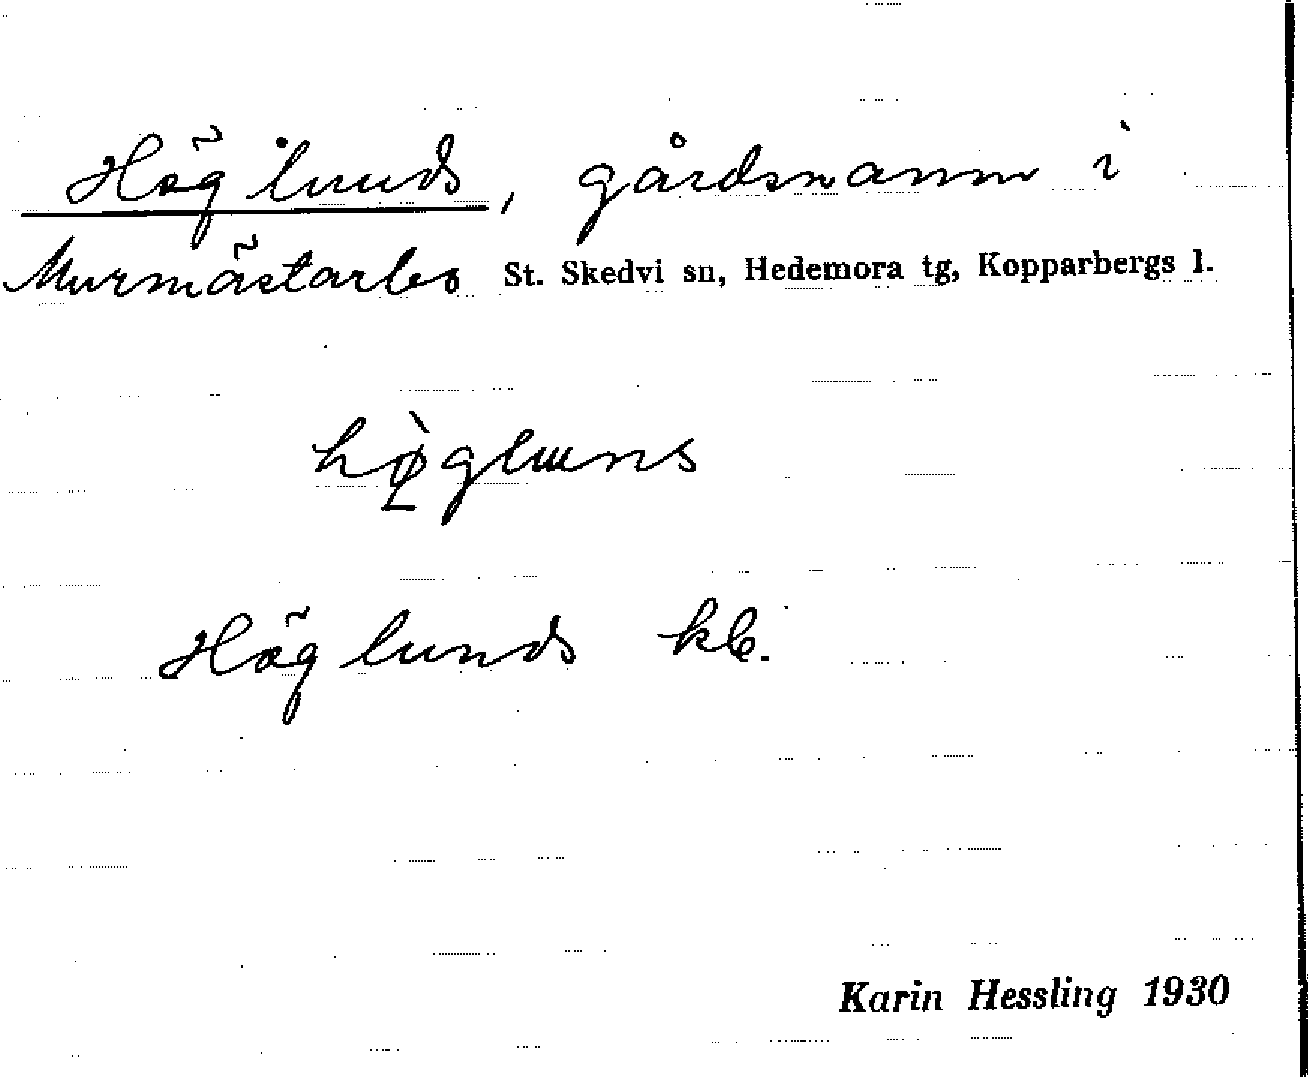 Höglunds, gårdsnamn i
Murmästarbo St. Skedvi sn, Hedemora tg, Kopparbergs l.
hø̀glɯns
Höglunds kb.
Karin Hessling 1930